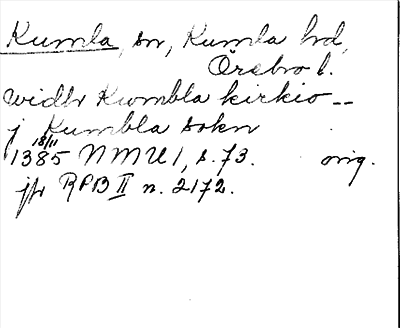 Kumla, sn, Kumla hd,
Örebro l.
widhr Kwmbla kirkio --
j Kumbla sokn
18/11
1385 NMU 1, s. 73. orig.
jfr RPB II n. 2172.